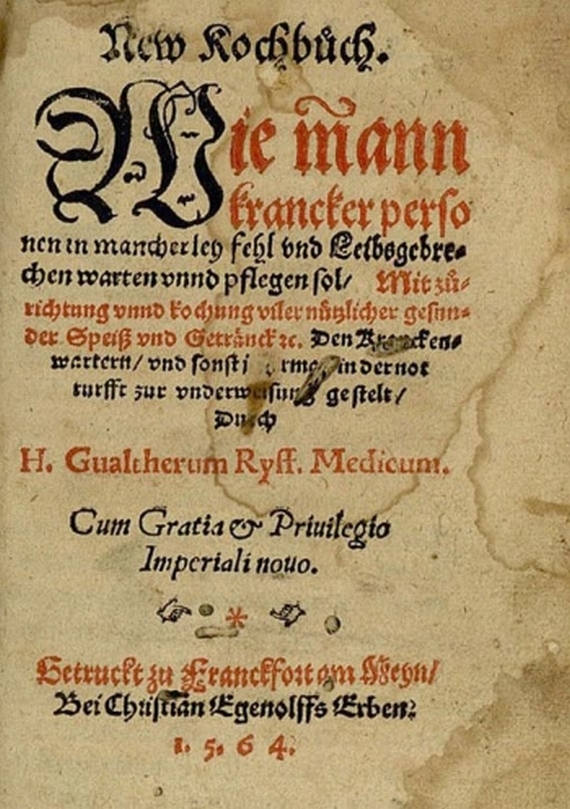 New Kochbůch.
Wie m̃ann
krancker perso
nen in mancherley fehl vnd Leibsgebre-
chen warten vnnd pflegen sol/ Mit zů-
richtung vnnd kochung viler nützlicher gesun-
der Speiß vnd Getränck ꝛc. Den Krancken-
wartern/ vnd sonst in der not
turfft zur vnderweisung gestelt/
Durch
H. Gualtherum Ryff. Medicum.
Cum Gratia & Priuilegio
Imperiali nouo.
☞ * ☜
Getruckt zu Franckfort am Meyn/
Bei Christian Egenolffs Erben.
1. 5. 6 4.